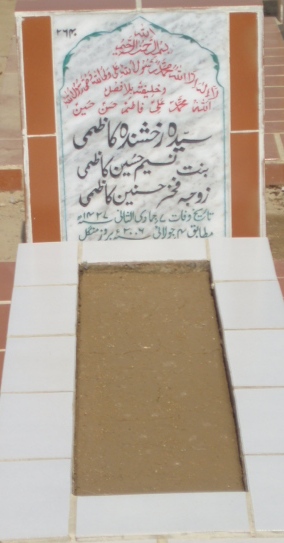 ۲۶۳
اللہ
بسم اللہ الرحمن الرحیم
لا الہ الا اللہ محمد رسول اللہ علی ولی اللہ وصی رسول اللہ
وخلیفتہ بلا فصل
اللہ محمد علی فاطمہ حسن حسین
سیدہ رخشندہ کاظمی
بنت نسیم حسین کاظمی
زوجہ فخر حسنین کاظمی
تاریخ وفات ۷ جمادی الثانی ۱۴۲۷ھ
مطابق ۴ جولائی ۲۰۰۶ بروز منگل